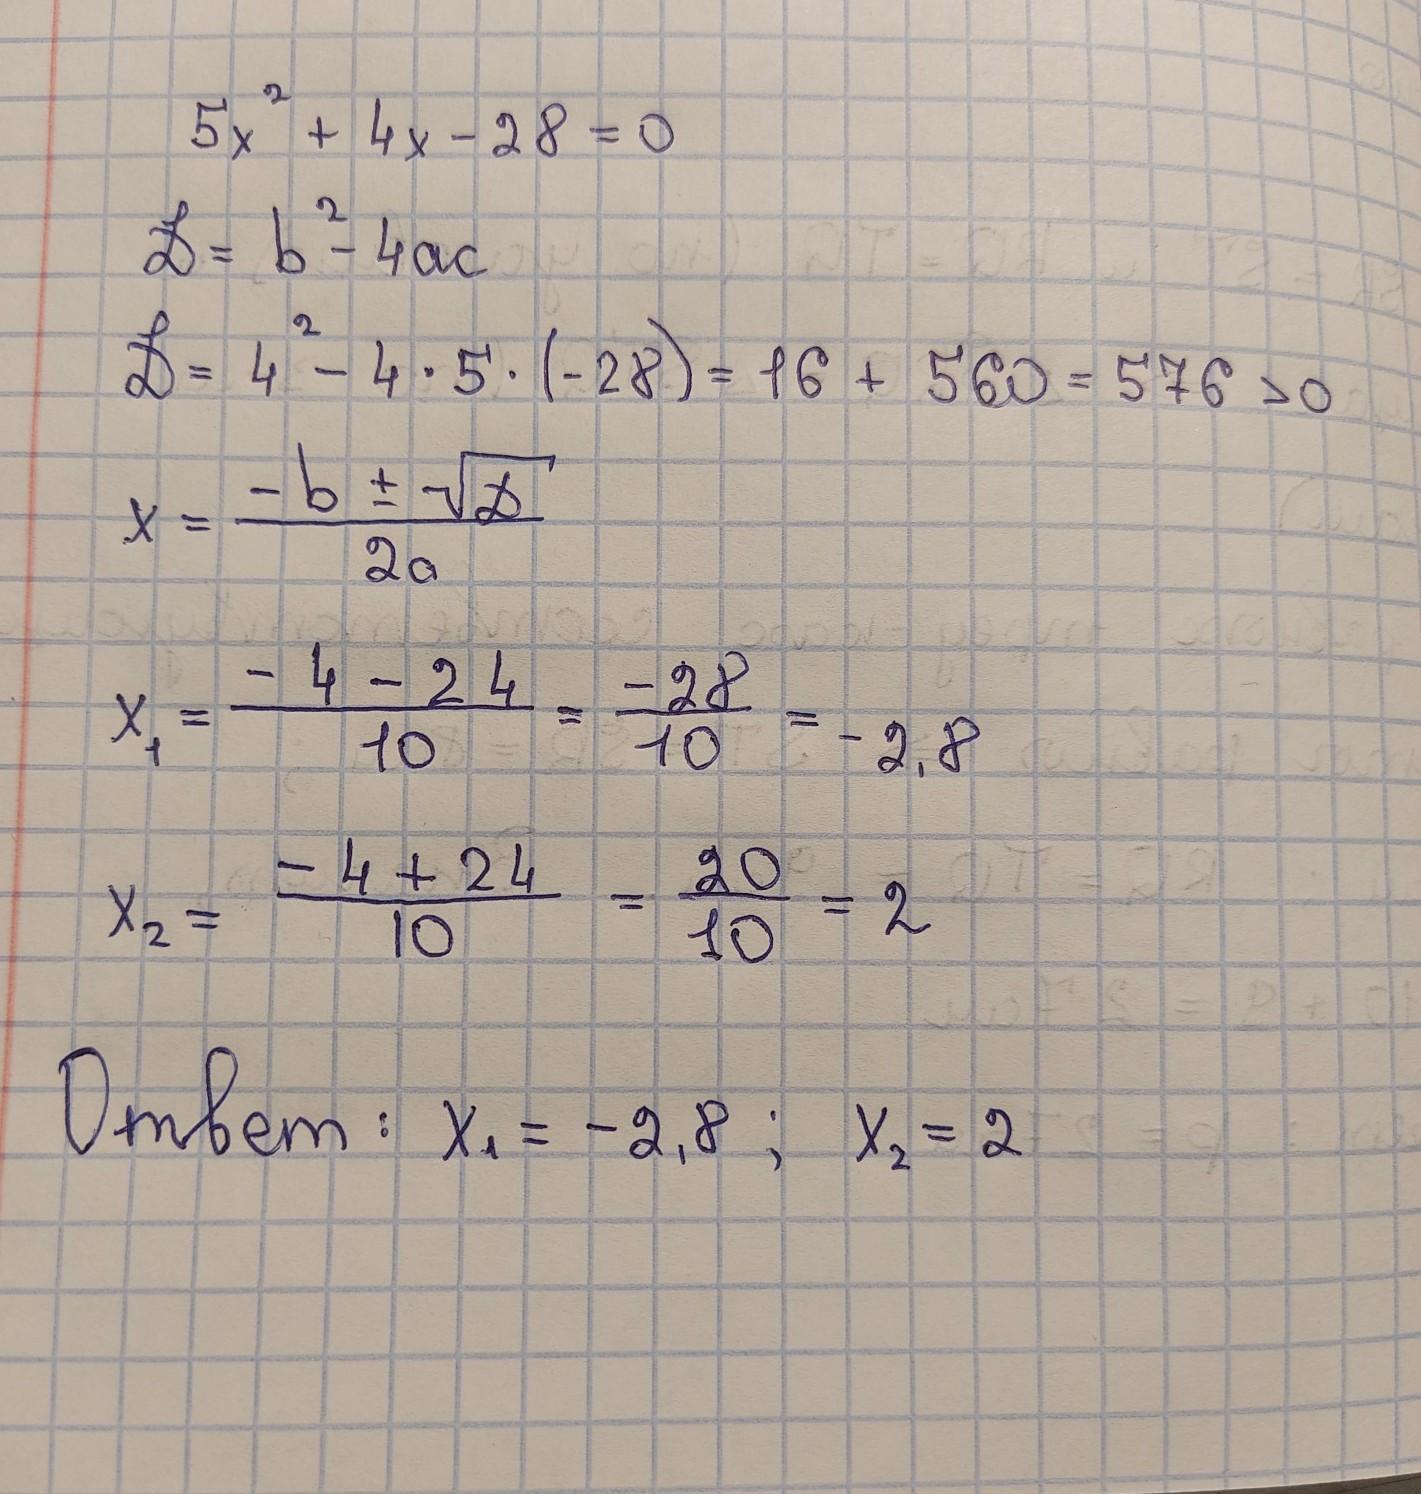 5x² + 4x - 28 = 0
D = b² - 4ac
D = 4² - 4 · 5 · (-28) = 16 + 560 = 576 > 0
x = (-b ± √D) / 2a
x₁ = (-4 - 24) / 10 = -28 / 10 = -2,8
x₂ = (-4 + 24) / 10 = 20 / 10 = 2
Ответ: x₁ = -2,8 ; x₂ = 2